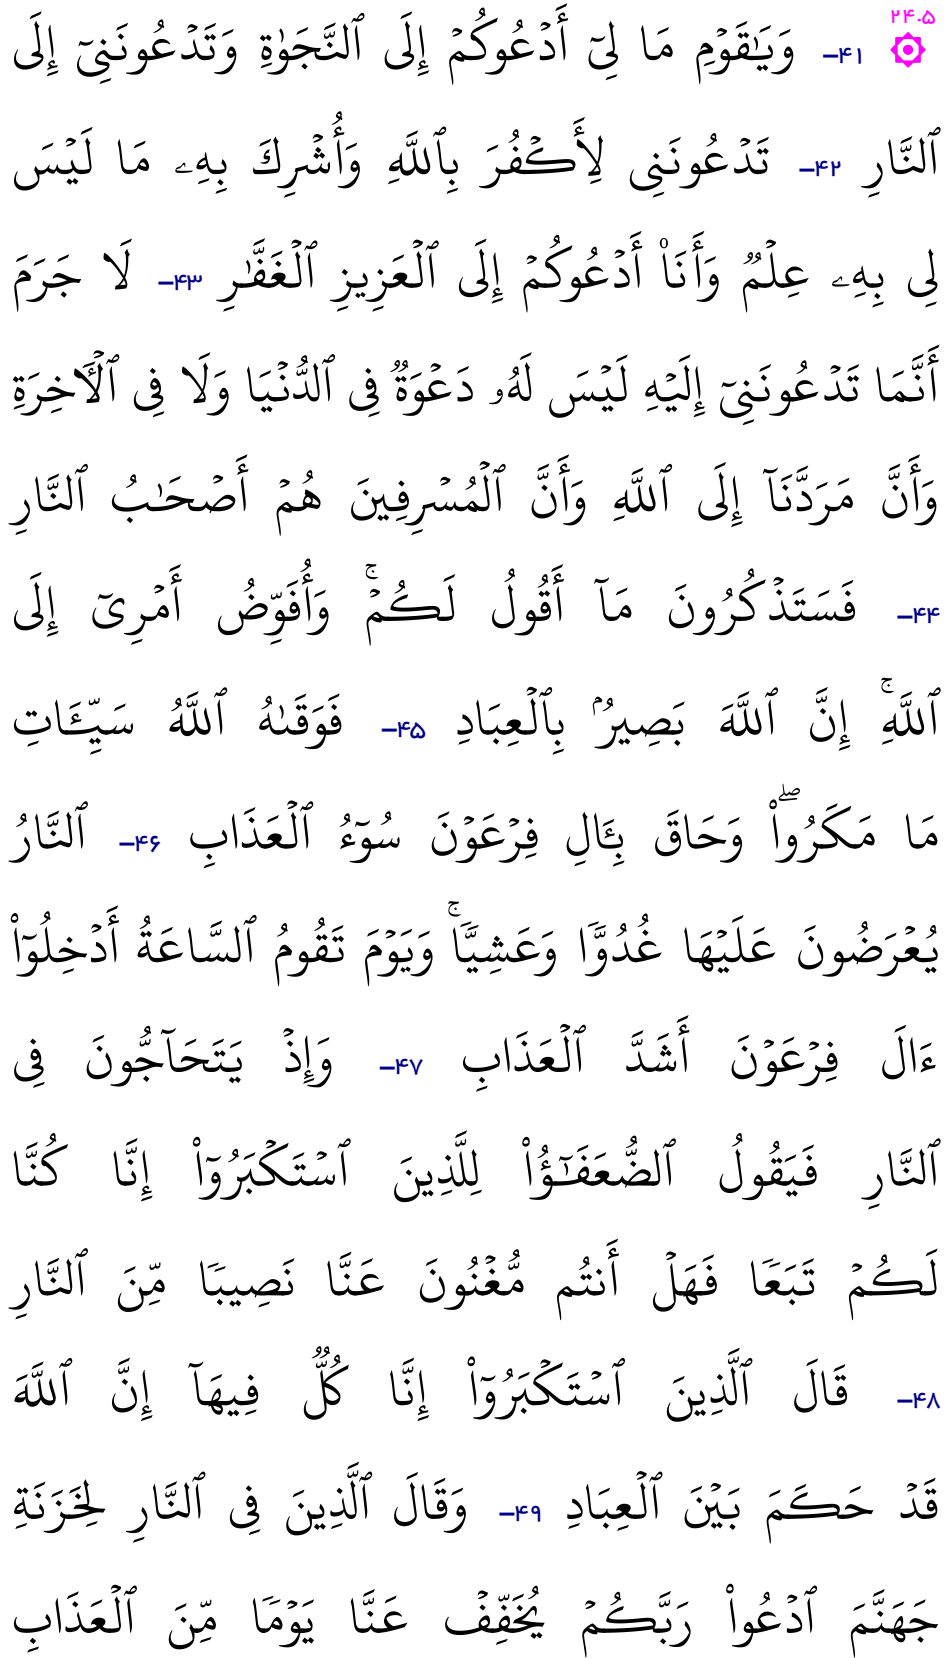 ۲۴.۵
۴۱- وَيَٰقَوۡمِ مَا لِيٓ أَدۡعُوكُمۡ إِلَى ٱلنَّجَوٰةِ وَتَدۡعُونَنِيٓ إِلَى
ٱلنَّارِ ۴۲- تَدۡعُونَنِي لِأَكۡفُرَ بِٱللَّهِ وَأُشۡرِكَ بِهِۦ مَا لَيۡسَ
لِي بِهِۦ عِلۡمٞ وَأَنَا۠ أَدۡعُوكُمۡ إِلَى ٱلۡعَزِيزِ ٱلۡغَفَّٰرِ ۴۳- لَا جَرَمَ
أَنَّمَا تَدۡعُونَنِيٓ إِلَيۡهِ لَيۡسَ لَهُۥ دَعۡوَةٞ فِي ٱلدُّنۡيَا وَلَا فِي ٱلۡأٓخِرَةِ
وَأَنَّ مَرَدَّنَآ إِلَى ٱللَّهِ وَأَنَّ ٱلۡمُسۡرِفِينَ هُمۡ أَصۡحَٰبُ ٱلنَّارِ
۴۴- فَسَتَذۡكُرُونَ مَآ أَقُولُ لَكُمۡۚ وَأُفَوِّضُ أَمۡرِيٓ إِلَى
ٱللَّهِۚ إِنَّ ٱللَّهَ بَصِيرُۢ بِٱلۡعِبَادِ ۴۵- فَوَقَىٰهُ ٱللَّهُ سَيِّـَٔاتِ
مَا مَكَرُواْۖ وَحَاقَ بِـَٔالِ فِرۡعَوۡنَ سُوٓءُ ٱلۡعَذَابِ ۴۶- ٱلنَّارُ
يُعۡرَضُونَ عَلَيۡهَا غُدُوّٗا وَعَشِيّٗاۚ وَيَوۡمَ تَقُومُ ٱلسَّاعَةُ أَدۡخِلُوٓاْ
ءَالَ فِرۡعَوۡنَ أَشَدَّ ٱلۡعَذَابِ ۴۷- وَإِذۡ يَتَحَآجُّونَ فِي
ٱلنَّارِ فَيَقُولُ ٱلضُّعَفَٰٓؤُاْ لِلَّذِينَ ٱسۡتَكۡبَرُوٓاْ إِنَّا كُنَّا
لَكُمۡ تَبَعٗا فَهَلۡ أَنتُم مُّغۡنُونَ عَنَّا نَصِيبٗا مِّنَ ٱلنَّارِ
۴۸- قَالَ ٱلَّذِينَ ٱسۡتَكۡبَرُوٓاْ إِنَّا كُلّٞ فِيهَآ إِنَّ ٱللَّهَ
قَدۡ حَكَمَ بَيۡنَ ٱلۡعِبَادِ ۴۹- وَقَالَ ٱلَّذِينَ فِي ٱلنَّارِ لِخَزَنَةِ
جَهَنَّمَ ٱدۡعُواْ رَبَّكُمۡ يُخَفِّفۡ عَنَّا يَوۡمٗا مِّنَ ٱلۡعَذَابِ